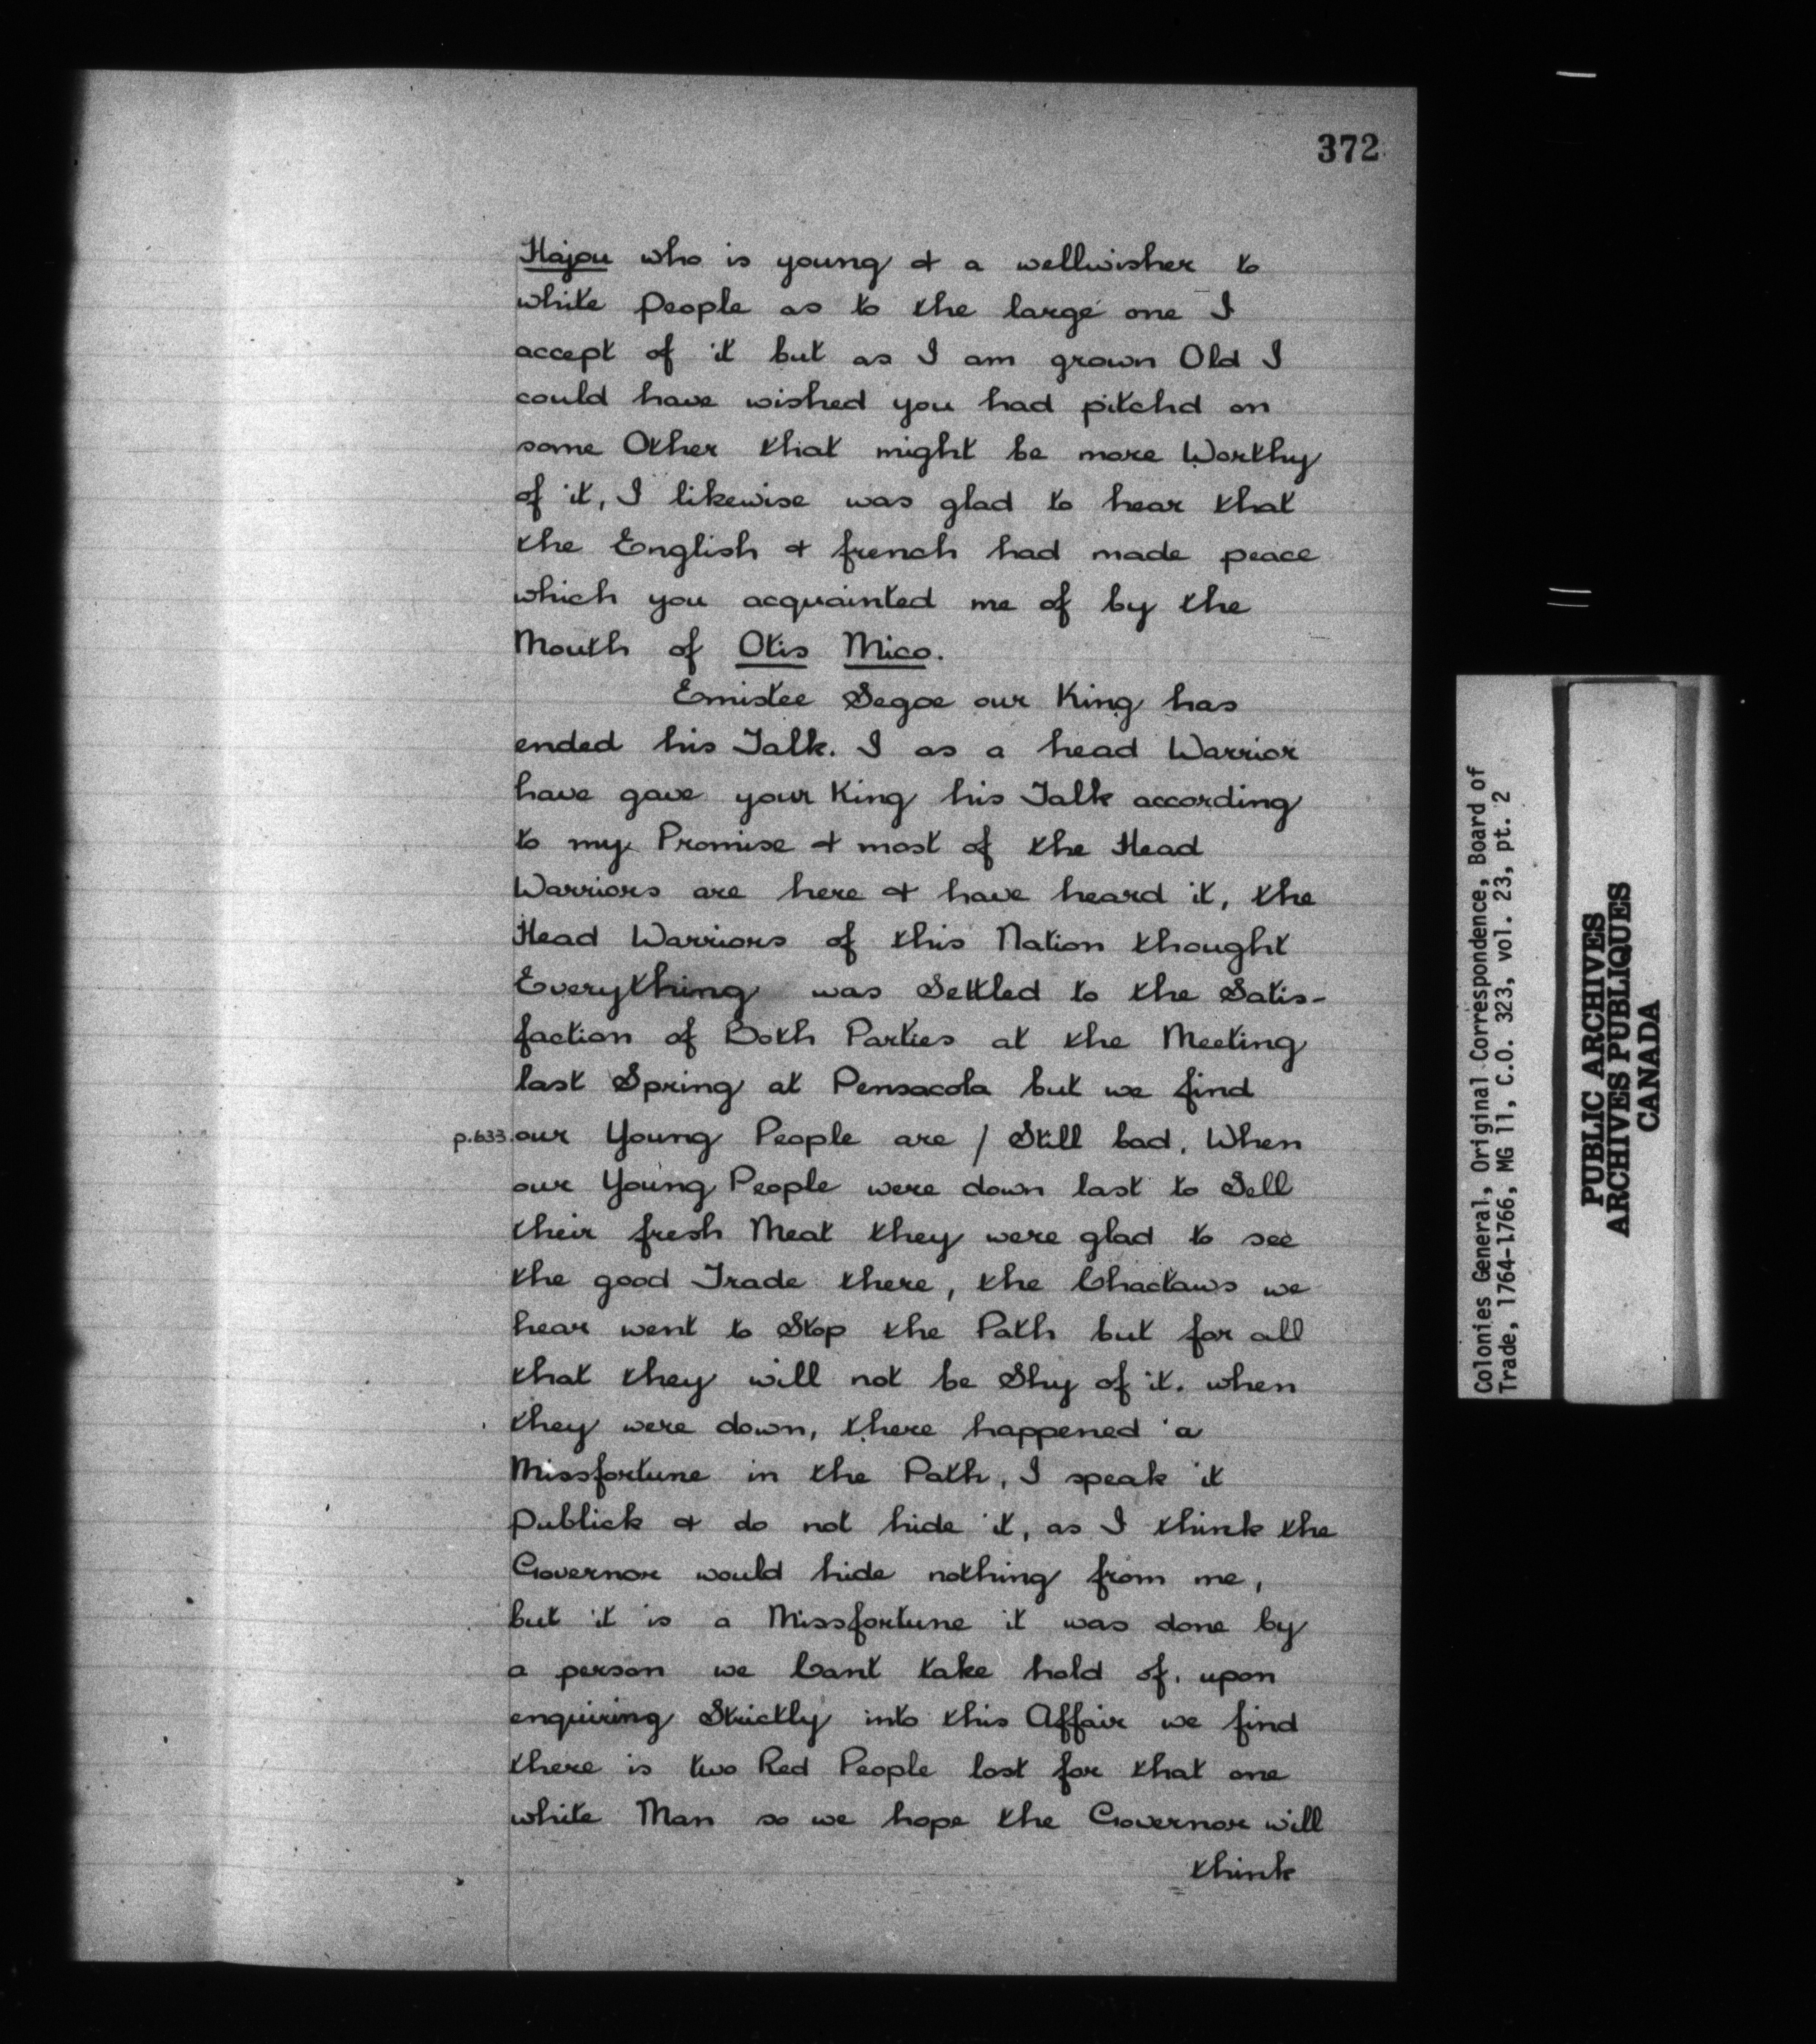 372
Hajou who is young & a wellwisher to
white people as to the large one I
accept of it but as I am grown Old I
could have wished you had pitchd on
some Other that might be more Worthy
of it, I likewise was glad to hear that
the English & french had made peace
which you acquainted me of by the
Mouth of Otis Mico.
Emistee Segoe our King has
ended his Talk. I as a head Warrior
have gave your King his Talk according
to my Promise & most of the Head
Warriors are here & have heard it, the
Head Warriors of this Nation thought
Everything was Settled to the Satis-
faction of Both Parties at the Meeting
last Spring at Pensacola but we find
p.633. our Young People are / Still bad. When
our Young People were down last to Sell
their fresh Meat they were glad to see
the good Trade there, the Chactaws we
hear went to Stop the Path but for all
that they will not be Shy of it. when
they were down, there happened a
Missfortune in the Path, I speak it
publick & do not hide it, as I think the
Governor would hide nothing from me,
but it is a Missfortune it was done by
a person we Cant take hold of. upon
enquiring Strictly into this Affair we find
there is two Red People lost for that one
white Man so we hope the Governor will
think
Colonies General, Original Correspondence, Board of
Trade, 1764-1766, MG 11, C.O. 323, vol. 23, pt. 2
PUBLIC ARCHIVES
ARCHIVES PUBLIQUES
CANADA